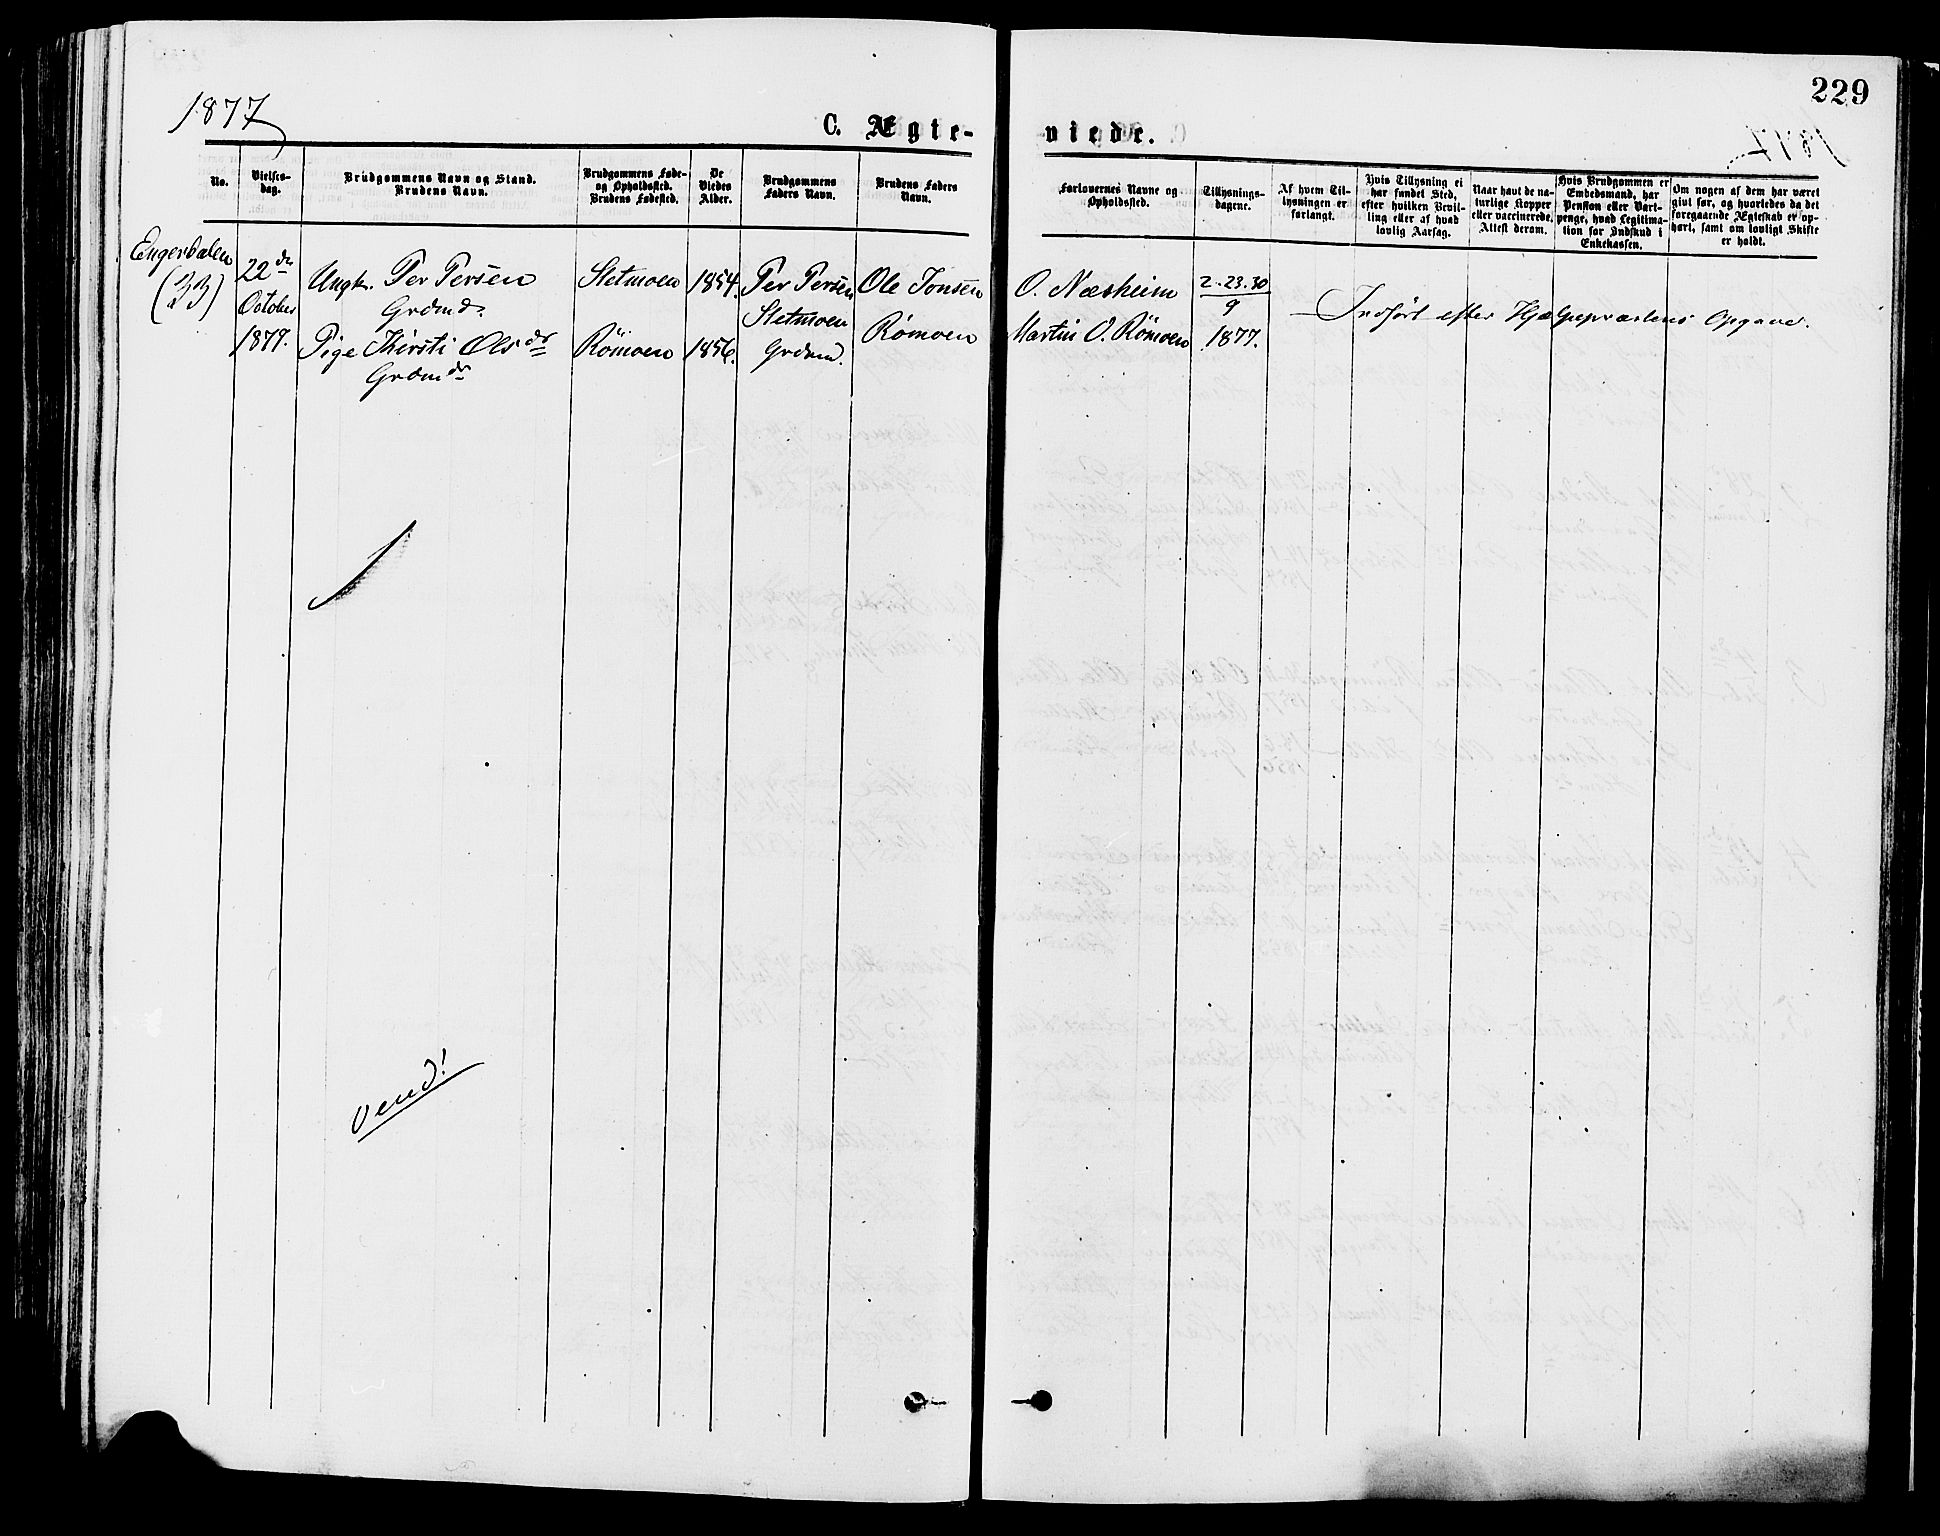 229
1877
C. Ægte-
viede.
No.
Vielses-
dag.
Brudgommens Navn og Stand.
Brudens Navn.
Brudgommens Føde-
og Opholdssted.
Brudens Fødested.
De
Viedes
Alder.
Brudgommens
Faders Navn.
Brudens Faders
Navn.
Forlovernes Navne og
Opholdssted.
Tillysnings-
dagene.
Af hvem Til-
lysningen er
forlangt.
Hvis Tillysning ei
har fundet Sted,
efter hvilken Bevil-
ling eller af hvad
lovlig Aarsag.
Naar havt de na-
turlige Kopper
eller vaccinerede.
Attest derom.
Hvis Brudgommen er
Embedsmand, har
Pension eller Vart-
penge, hvad Legitima-
tion for Indskud i
Enkekassen.
Om nogen af dem har været
givt før, og hvorledes da det
foregaaende Ægteskab er op-
hørt, samt om lovligt Skifte
er holdt.
Engerdalen
(33)
22de
October
1877.
Ungk. Per Persen
Grdmds.
Pige Kirsti Olsdr
Grdmdr
Sletmoen
Römoen
1854.
1856.
Per Persen
Sletmoen
Grdmd.
Ole Jonsen
Römoen
O. Næsheim
Martin O. Römoen
2.23.30
9
1877.
Indført efter Hjælpepræstens Opgave.
Vend!